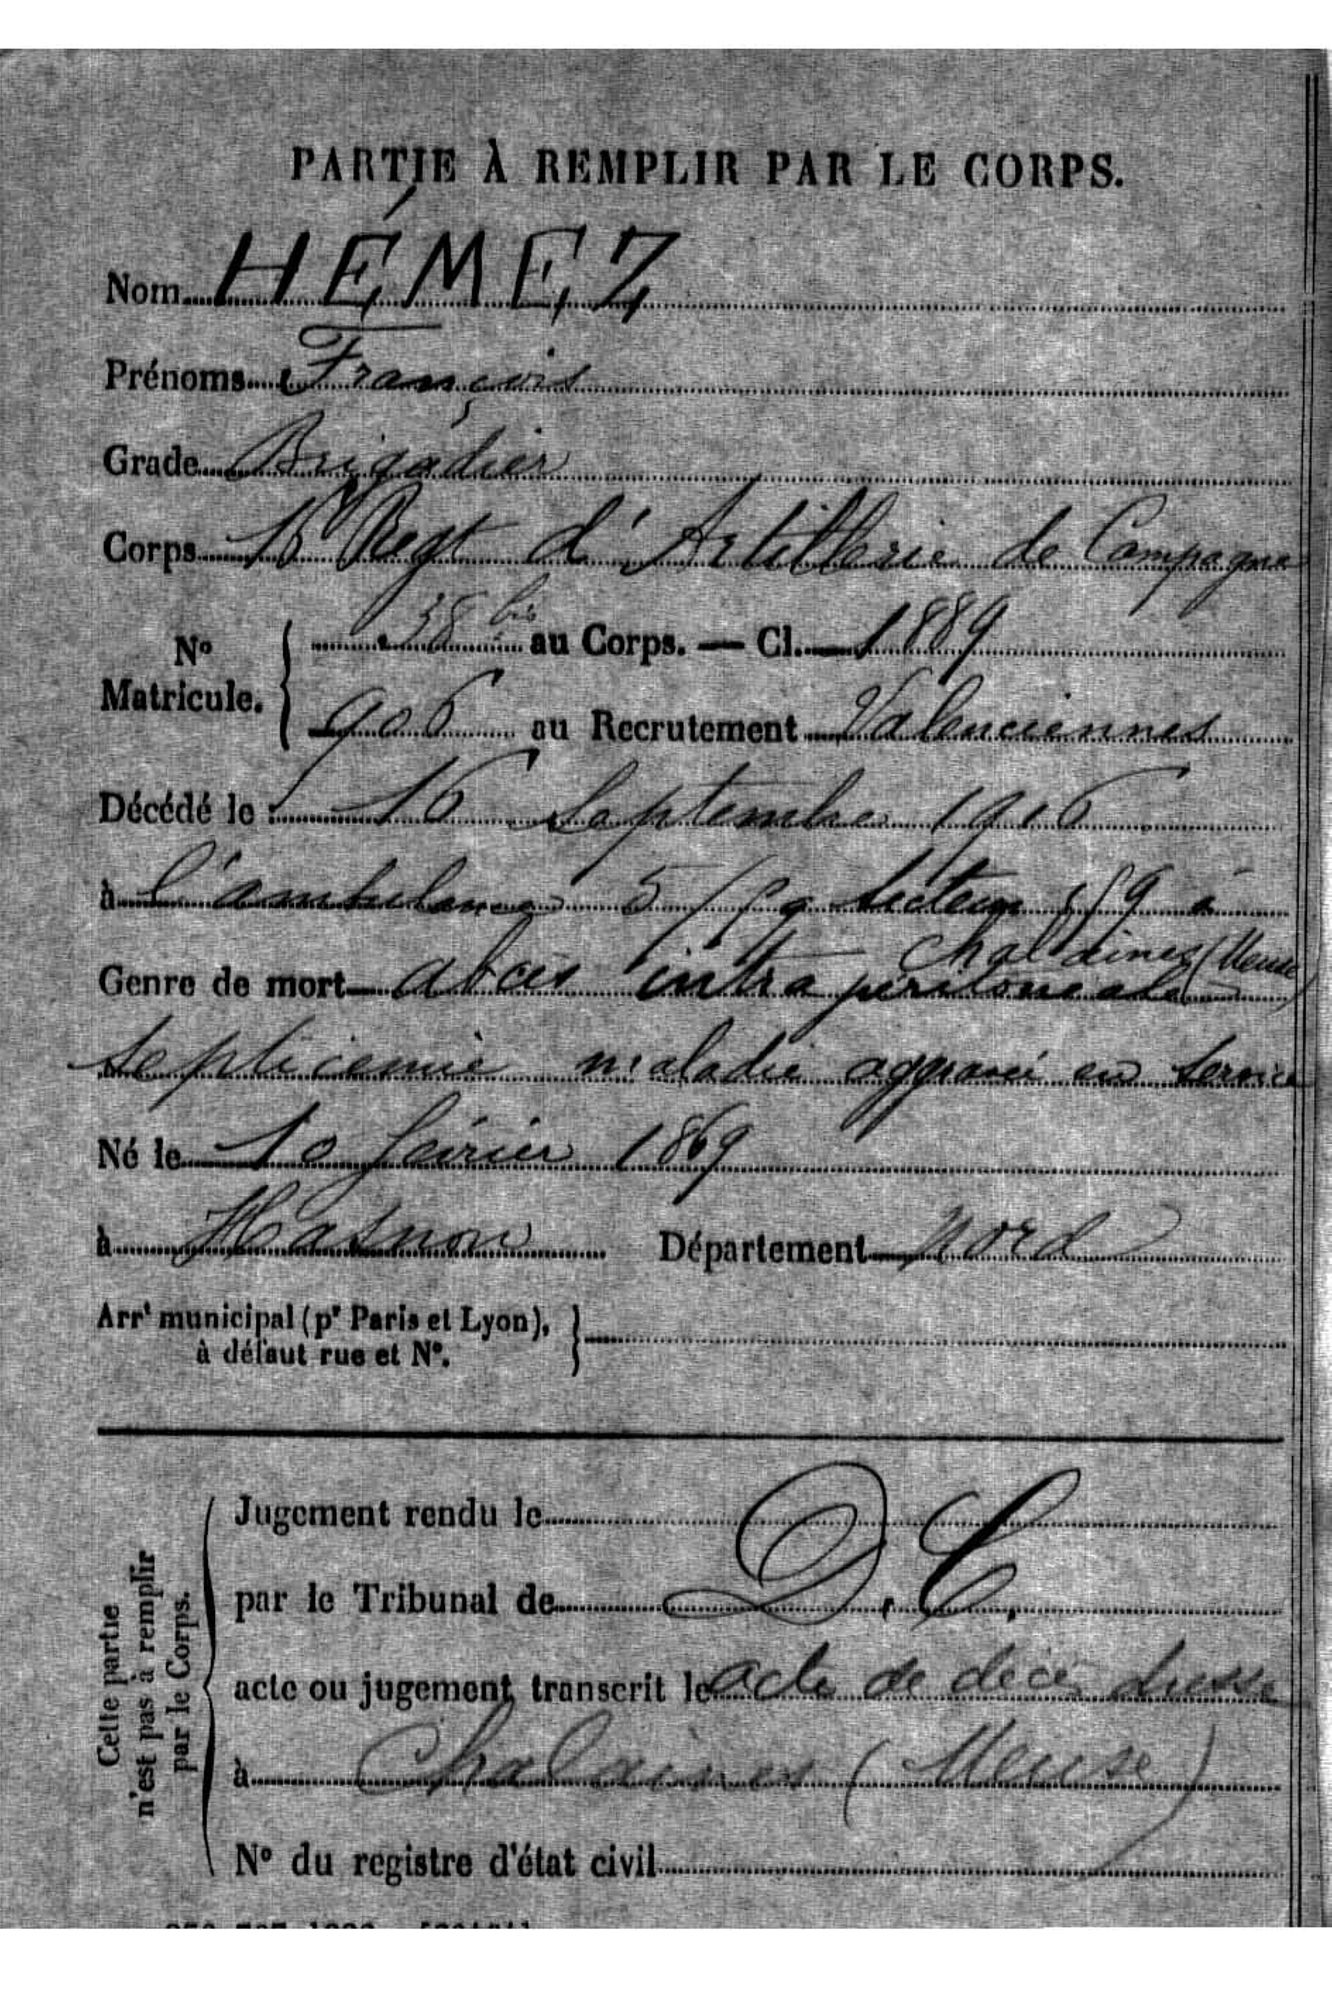 PARTIE À REMPLIR PAR LE CORPS.
Nom HÉMEZ
Prénoms François
Grade Brigadier
Corps 15 Regt d'Artillerie de Campagne
No Matricule. 38 bis au Corps. — Cl. 1889
906 au Recrutement Valenciennes
Décédé le 16 Septembre 1916
à l'ambulance 5/ secteur 59 à
Chalaines (Meuse)
Genre de mort abcès intra peritoneale
Septicemie maladie aggravé en Service
Né le 10 février 1869
à Hasnon Département Nord
Arrt municipal (pr Paris et Lyon),
à défaut rue et No.
Cette partie
n'est pas à remplir
par le Corps.
Jugement rendu le
par le Tribunal de D.C.
acte ou jugement transcrit le acte de décès dressé
à Chalaines (Meuse)
No du registre d'état civil